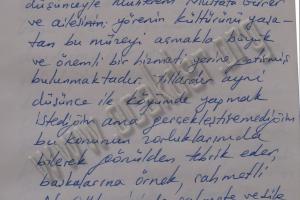 düşünceyle muhterem Mustafa
ve ailesinin; yörenin kültürünü yaşa-
tan bu müzeyi açmakla büyük
ve önemli bir hizmeti yerine getirmiş
bulunmaktadır. Yıllardır ayni
düşünce ile köyümde yapmak
istediğim ama gerçekleştiremediğim
bu konunun zorluklarınıda
bilerek gönülden tebrik eder,
başkalarına örnek, rahmetli